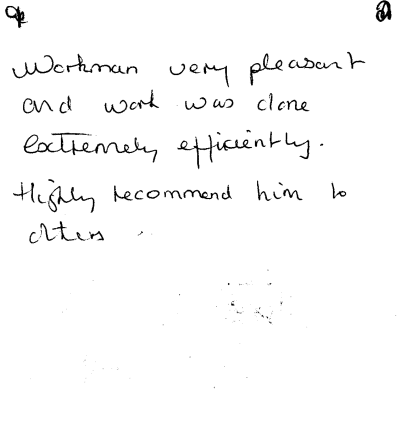 Workman very pleasant
and work was done
extremely efficiently.
Highly recommend him to
others.